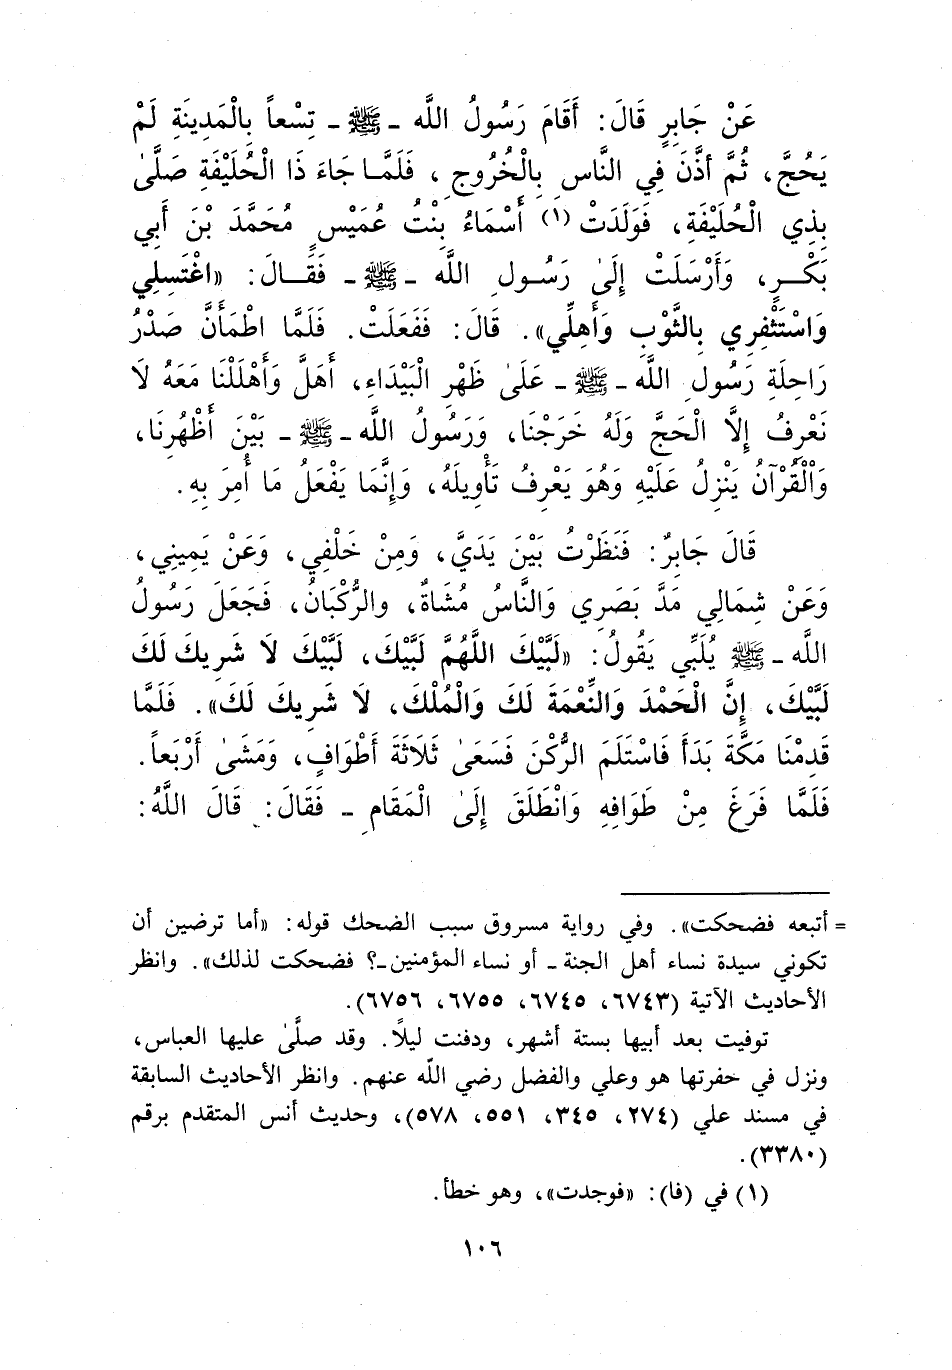 عَنْ جَابِرٍ قَالَ: أَقَامَ رَسُولُ اللَّه ـ ﷺ ـ تِسْعاً بِالْمَدِينَةِ لَمْ
يَحُجَّ، ثُمَّ أَذَّنَ فِي النَّاسِ بِالْخُرُوجِ، فَلَمَّا جَاءَ ذَا الْحُلَيْفَةِ صَلَّىٰ
بِذِي الْحُلَيْفَةِ، فَوَلَدَتْ (١) أَسْمَاءُ بِنْتُ عُمَيْسٍ مُحَمَّدَ بْنَ أَبِي
بَكْرٍ، وَأَرْسَلَتْ إِلَىٰ رَسُولِ اللَّه ـ ﷺ ـ فَقَالَ: «اغْتَسِلِي
وَاسْتَثْفِرِي بِالثَّوْبِ وَأَهِلِّي». قَالَ: فَفَعَلَتْ. فَلَمَّا اطْمَأَنَّ صَدْرُ
رَاحِلَةِ رَسُولِ اللَّه ـ ﷺ ـ عَلَىٰ ظَهْرِ الْبَيْدَاءِ، أَهَلَّ وَأَهْلَلْنَا مَعَهُ لَا
نَعْرِفُ إِلَّا الْحَجَّ وَلَهُ خَرَجْنَا، وَرَسُولُ اللَّه ـ ﷺ ـ بَيْنَ أَظْهُرِنَا،
وَالْقُرْآنُ يَنْزِلُ عَلَيْهِ وَهُوَ يَعْرِفُ تَأْوِيلَهُ، وَإِنَّمَا يَفْعَلُ مَا أُمِرَ بِهِ.
قَالَ جَابِرٌ: فَنَظَرْتُ بَيْنَ يَدَيَّ، وَمِنْ خَلْفِي، وَعَنْ يَمِينِي،
وَعَنْ شِمَالِي مَدَّ بَصَرِي وَالنَّاسُ مُشَاةٌ، والرُّكْبَانُ، فَجَعَلَ رَسُولُ
اللَّه ـ ﷺ يُلَبِّي يَقُولُ: «لَبَّيْكَ اللَّهُمَّ لَبَّيْكَ، لَبَّيْكَ لَا شَرِيكَ لَكَ
لَبَّيْكَ، إِنَّ الْحَمْدَ وَالنِّعْمَةَ لَكَ وَالْمُلْكَ، لَا شَرِيكَ لَكَ». فَلَمَّا
قَدِمْنَا مَكَّةَ بَدَأَ فَاسْتَلَمَ الرُّكْنَ فَسَعَىٰ ثَلَاثَةَ أَطْوَافٍ، وَمَشَىٰ أَرْبَعاً.
فَلَمَّا فَرَغَ مِنْ طَوَافِهِ وَانْطَلَقَ إِلَىٰ الْمَقَامِ ـ فَقَالَ: قَالَ اللَّهُ:
= أتبعه فضحكت». وفي رواية مسروق سبب الضحك قوله: «أما ترضين أن
تكوني سيدة نساء أهل الجنة ـ أو نساء المؤمنين ـ؟ فضحكت لذلك». وانظر
الأحاديث الآتية (٦٧٤٣، ٦٧٤٥، ٦٧٥٥، ٦٧٥٦).
توفيت بعد أبيها بستة أشهر، ودفنت ليلًا. وقد صلَّىٰ عليها العباس،
ونزل في حفرتها هو وعلي والفضل رضي اللَّه عنهم. وانظر الأحاديث السابقة
في مسند علي (٢٧٤، ٣٤٥، ٥٥١، ٥٧٨)، وحديث أنس المتقدم برقم
(٣٣٨٠).
(١) في (فا): «فوجدت»، وهو خطأ.
١٠٦